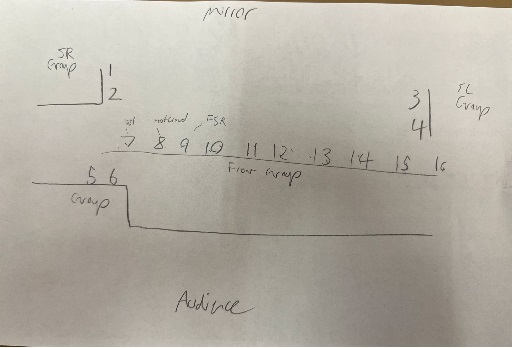 Mirror
SR
Group
1
2
3
4
SL
Group
FSR
7 8 9 10 11 12 13 14 15 16
Front Group
5 6
Group
Audience